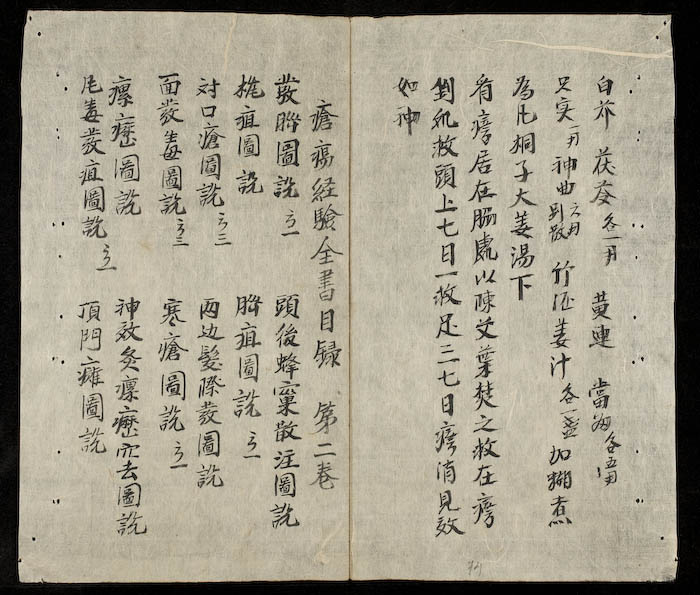 白朮 茯苓 各一 黄連 當 各五
只实 一 神曲 六 竹 姜汁 各一盞 加糊煮
為凡桐子大姜湯下
有痞居在肠處以陳艾葉焚之救在痞
紙救頭上七日一救足三七日痞消見效
如神
瘡瘍経驗全書目録 第二卷
發圖説 一 頭後蜂窠散注圖説
疽圖説 疽圖説 一
対口瘡圖説 三 两边髮際發圖説
面發毒圖説 三 寒瘡圖説 一
瘰癧圖説 神效灸瘰癧穴去圖説
尾毒發疽圖説 一 頂門癰圖説